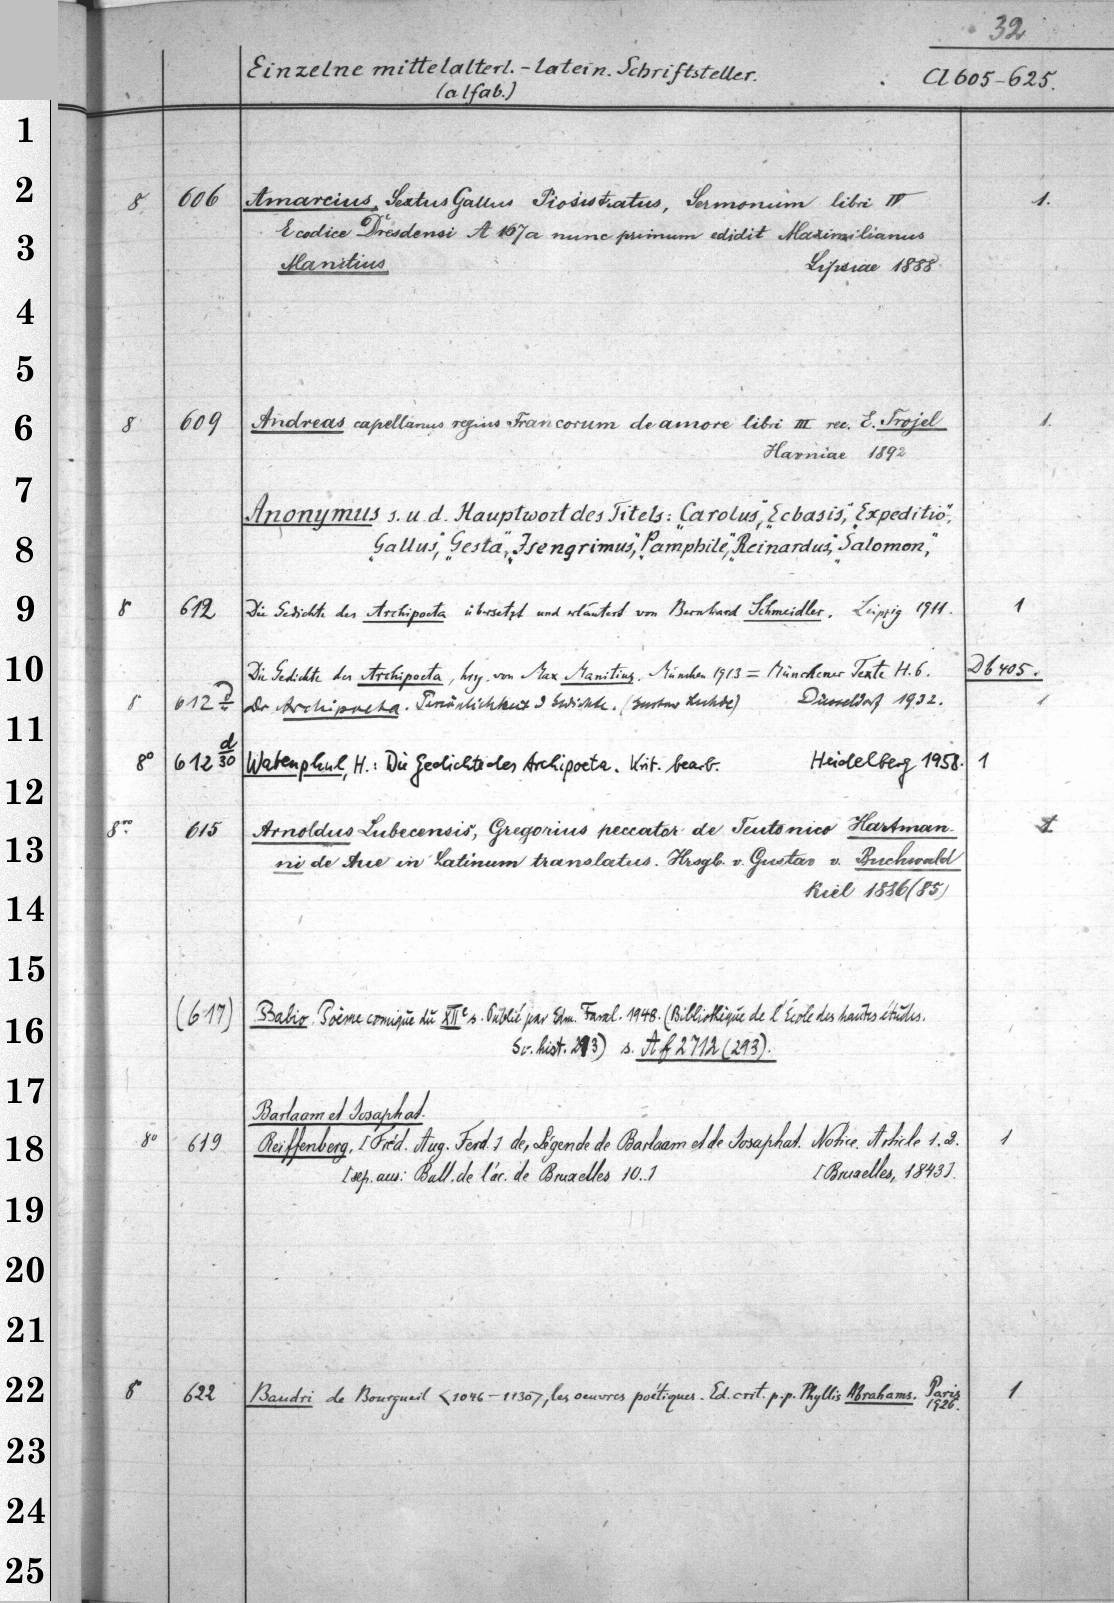 32
Einzelne mittelalterl.-latein. Schriftsteller.
(alfab.)
Cl 605-625.
1
2
8. 606 Amarcius, Sextus Gallus Piosistratus, Sermonum libri IV 1.
3
E codice Dresdensi A 167a nunc primum edidit Maximilianus
Manitius Lipsiae 1888
4
5
6
8 609 Andreas capellanus regius Francorum de amore libri III rec. E. Trojel 1.
Havniae 1892
7
Anonymus s. u. d. Hauptwort des Titels: "Carolus", "Ecbasis", "Expeditio",
8
"Gallus", "Gesta", "Isengrimus", "Pamphile", "Reinardus", "Salomon",
9
8 612 Die Gedichte des Archipoeta übersetzt und erläutert von Bernhard Schmeidler. Leipzig 1911. 1
10
Die Gedichte des Archipoeta, hrg. von Max Manitius. München 1913 = Münchener Texte H. 6. Db 405.
8 612 Der Archipoeta. Persönlichkeit Gedichte. (Gustav) Düsseldorf 1932. 1
11
8° 612 d/30 Watenphul, H.: Die Gedichte des Archipoeta. Krit. bearb. Heidelberg 1958. 1
12
8vo. 615 Arnoldus Lubecensis, Gregorius peccator de Teutonico Hartman- 1
13
ni de Aue in Latinum translatus. Hrsgb. v. Gustav v. Buchwald
Kiel 1886(85)
14
15
(617) Babio. Poème comique du XIIe s. Publié par Edm. Faral. 1948. (Bibliothèque de l'École des hautes études.
16
Sc. hist. 293) s. Af 2712 (293).
17
Barlaam et Josaphat.
18
8° 619 Reiffenberg, [Fréd. Aug. Ferd.] de, Légende de Barlaam et de Josaphat. Notice. Article 1.2. 1
[sep. aus: Bull. de l'ac. de Bruxelles 10.] [Bruxelles, 1843].
19
20
21
22
8° 622 Baudri de Bourgueil <1046-1130>, les oeuvres poétiques. Ed. crit. p. p. Phyllis Abrahams. Paris 1926. 1
23
24
25